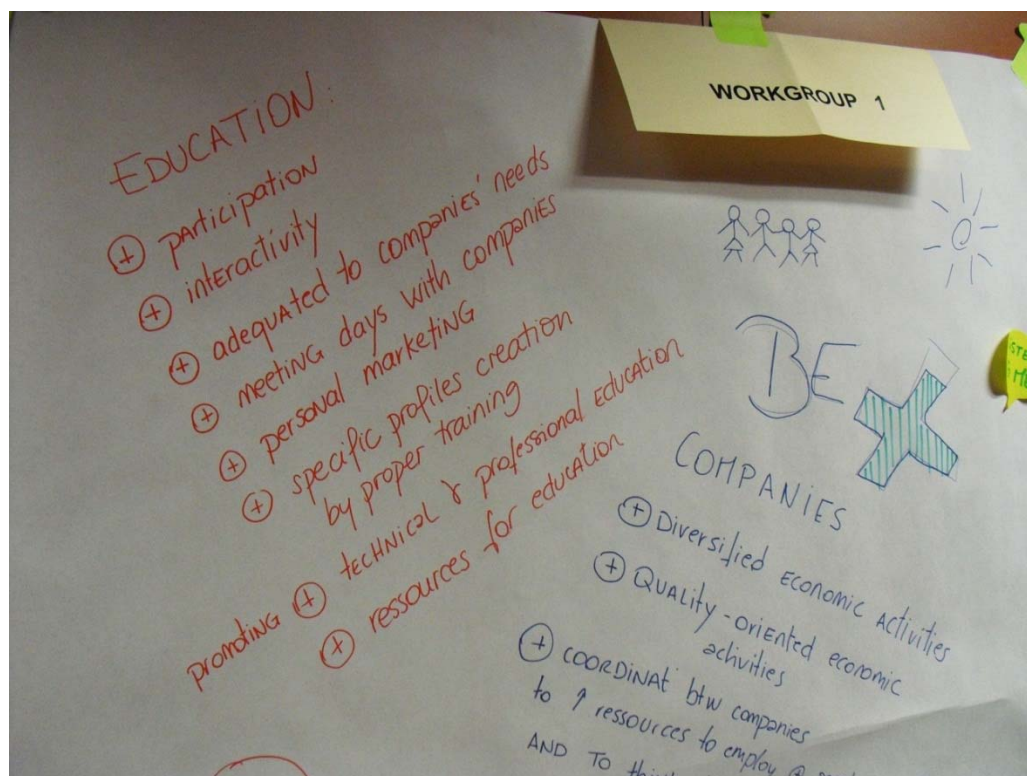 WORKGROUP 1
EDUCATION:
⊕ participation
⊕ interactivity
⊕ adequated to companies' needs
⊕ meeting days with companies
⊕ personal marketing
⊕ specific profiles creation
by proper training
promoting ⊕ technical & professional education
⊕ ressources for education
BE
COMPANIES
⊕ Diversified economic activities
⊕ Quality-oriented economic
activities
⊕ COORDINAT btw companies
to ↑ ressources to employ
AND TO